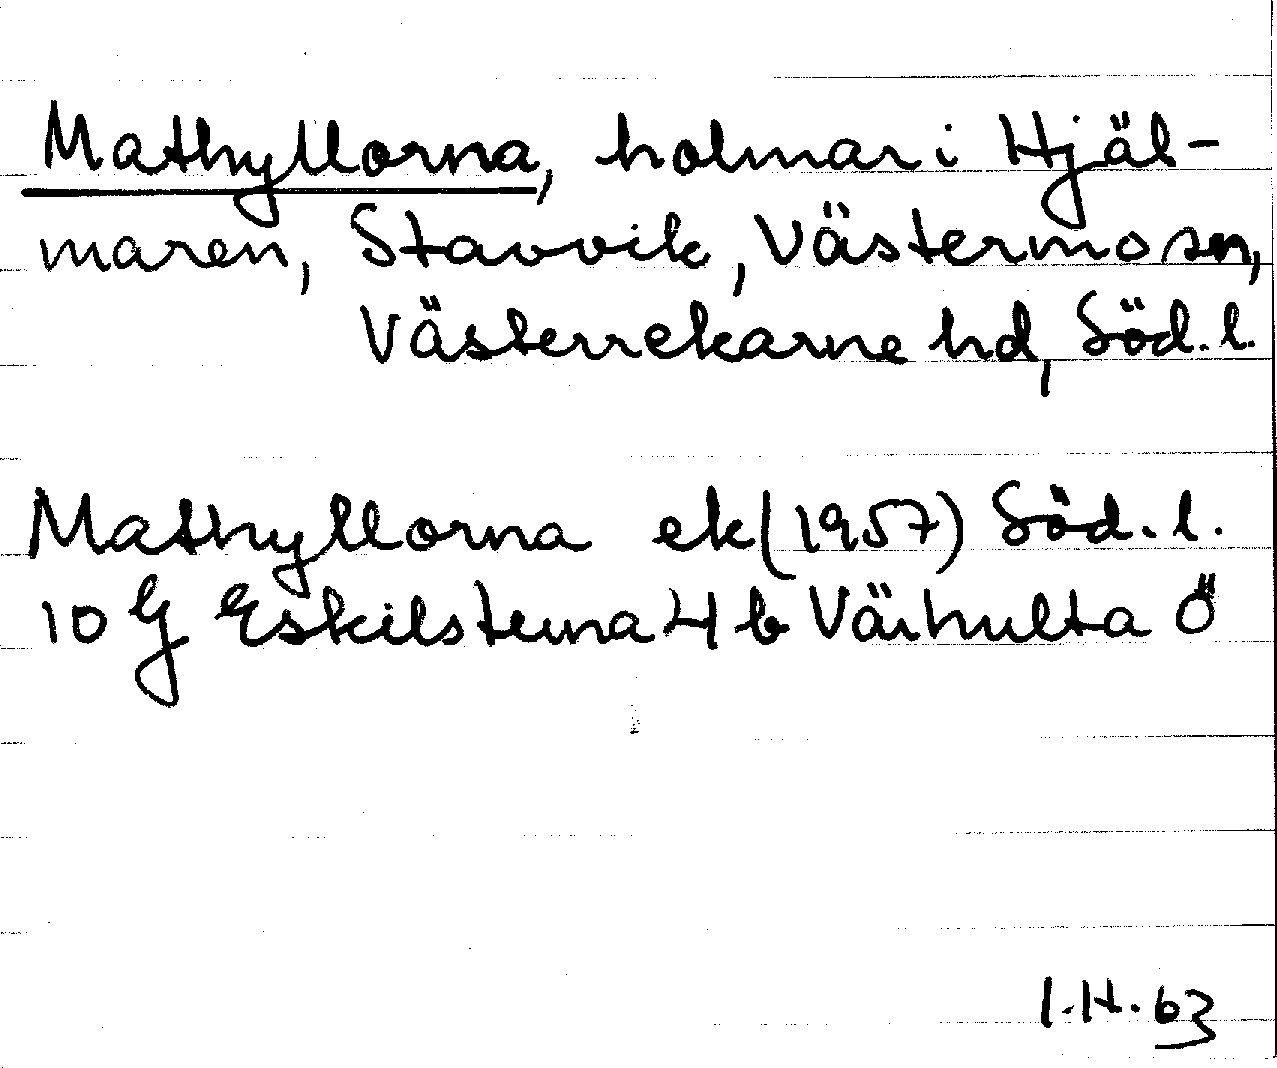 Mathyllorna, holmar i Hjäl-
maren, Stavvik, Västermo sn,
Västerrekarne hd, Söd. l.
Mathyllorna ek (1957) Söd. l.
10 G Eskilstuna 4 b Väihulta Ö
I.H. 63